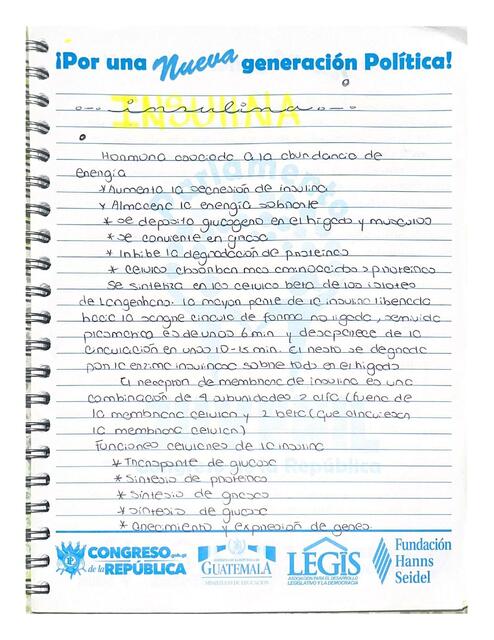 ¡Por una Nueva generación Política!
insulina
INSULINA
Hormona asociada a la abundancia de
energía
* Aumento la secresión de insulina
Y Almacena la energía sobrante
* se deposita glucogeno en el higado y musculos
* se convierte en grasa
* Inhibe la degradación de proteinas
* Celulas absorban mas aminoacidos y proteinas
Se sintetiza en las celulas beta de los islotes
de Langerhans. la mayor parte de la insulina liberada
hacia la sangre circula de forma no ligada, semivida
plasmatica es de unos 6 min y desaparece de la
circulación en unos 10-15 min. El resto se degrada
por la enzima insulinasa sobre todo en el higado
El receptor de membrana de insulina es una
combinación de 4 subunidades 2 alfa (fuera de
la membrana celular y 2 beta (que atraviesan
la membrana celular)
Funciones celulares de la insulina
* Transporte de glucosa
* Sintesis de proteinas
* Sintesis de grasas
* Sintesis de glucosa
* Crecimiento y expresión de genes.
CONGRESO gob.gt
de la REPÚBLICA
GUATEMALA
MINISTERIO DE EDUCACIÓN
LEGIS
ASOCIACIÓN PARA EL DESARROLLO
LEGISLATIVO Y LA DEMOCRACIA
Fundación
Hanns
Seidel